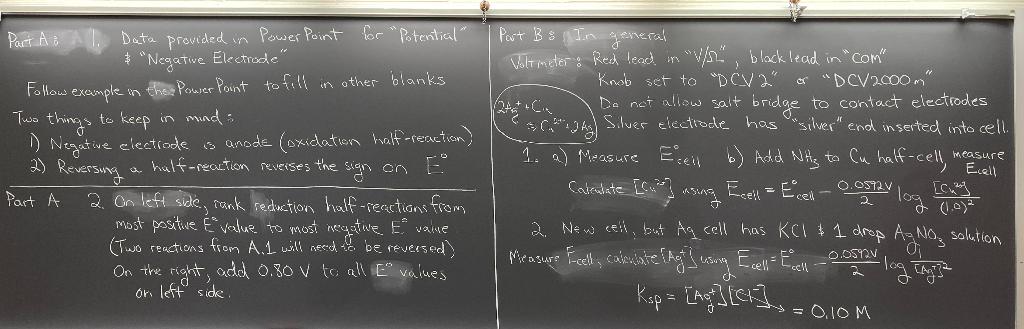 Part A: 1. Data provided in PowerPoint for "Potential"
& "Negative Electrode"
Follow example in the PowerPoint to fill in other blanks
Two things to keep in mind:
1) Negative electrode is anode (oxidation half-reaction)
2) Reversing a half-reaction reverses the sign on E°
Part A 2. On left side, rank reduction half-reactions from
most positive E° value to most negative E° value
(Two reactions from A.1 will need to be reversed)
On the right, add 0.80 V to all E° values
on left side.
Part B: In general
Voltmeter: Red lead in "V/Ω", black lead in "COM"
Knob set to "DCV 2" or "DCV2000m"
Do not allow salt bridge to contact electrodes
Silver electrode has "silver" end inserted into cell.
2Ag⁺ + Cu
⇌ Cu²⁺ + 2Ag
1. a) Measure E°cell b) Add NH₃ to Cu half-cell, measure
Ecell
Calculate [Cu²⁺] using Ecell = E°cell − 0.0592V/2 log [Cu²⁺]/(1.0)²
2. New cell, but Ag cell has KCl & 1 drop AgNO₃ solution
Measure Ecell, calculate [Ag⁺] using Ecell = E°cell − 0.0592V/2 log 0.1/[Ag⁺]²
Ksp = [Ag⁺][Cl⁻] = 0.10 M